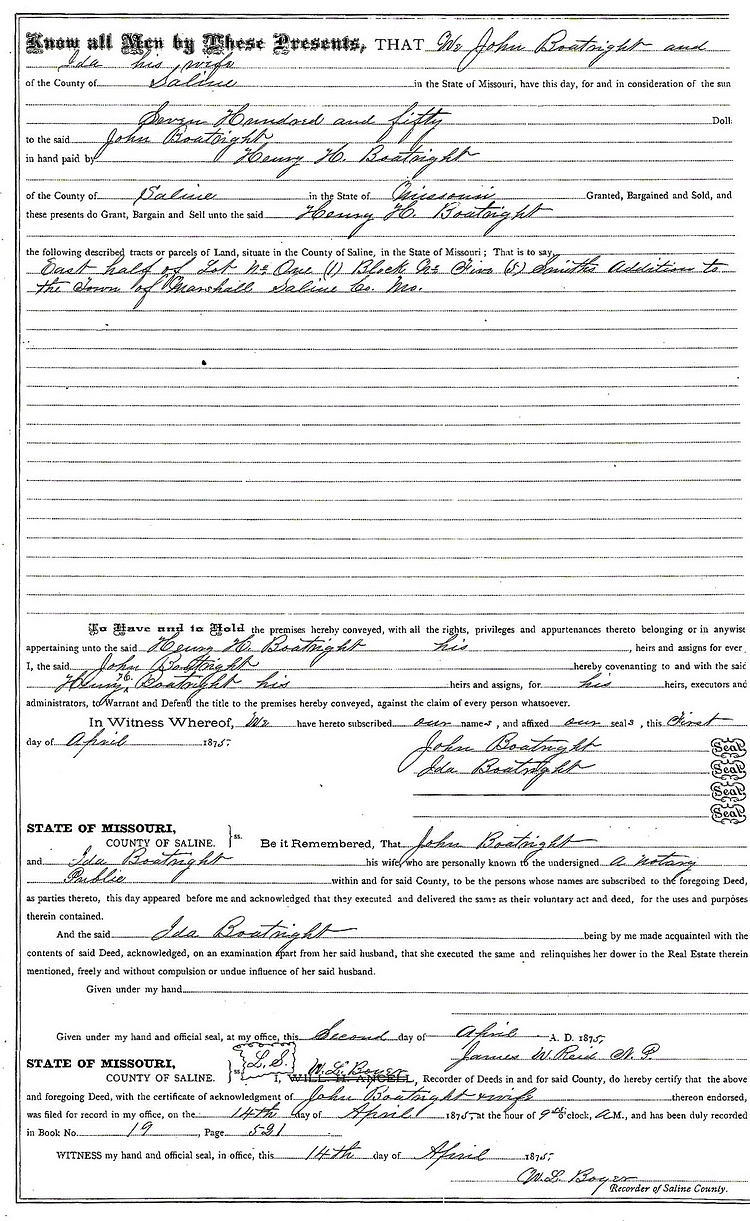 Know all Men by These Presents, THAT We John Boatright and
Ida his wife
of the County of Saline in the State of Missouri, have this day, for and in consideration of the sum
Seven Hundred and fifty Doll
to the said John Boatright
in hand paid by Henry H. Boatright
of the County of Saline in the State of Missouri Granted, Bargained and Sold, and
these presents do Grant, Bargain and Sell unto the said Henry H. Boatright
the following described tracts or parcels of Land, situate in the County of Saline, in the State of Missouri; That is to say,
East half of Lot No One (1) Block No Five (5) Smiths Addition to
the Town of Marshall Saline Co. Mo.
To Have and to Hold the premises hereby conveyed, with all the rights, privileges and appurtenances thereto belonging or in anywise
appertaining unto the said Henry H. Boatright his , heirs and assigns for ever
I, the said John Boatright hereby covenanting to and with the said
Henry H. Boatright his heirs and assigns, for his heirs, executors and
administrators, to Warrant and Defend the title to the premises hereby conveyed, against the claim of every person whatsoever.
In Witness Whereof, We have hereto subscribed our names, and affixed our seals, this First
day of April 1875.
John Boatright Seal
Ida Boatright Seal
Seal
Seal
STATE OF MISSOURI,
COUNTY OF SALINE. } ss. Be it Remembered, That John Boatright
and Ida Boatright his wife, who are personally known to the undersigned a notary
Public within and for said County, to be the persons whose names are subscribed to the foregoing Deed,
as parties thereto, this day appeared before me and acknowledged that they executed and delivered the same as their voluntary act and deed, for the uses and purposes
therein contained.
And the said Ida Boatright being by me made acquainted with the
contents of said Deed, acknowledged, on an examination apart from her said husband, that she executed the same and relinquishes her dower in the Real Estate therein
mentioned, freely and without compulsion or undue influence of her said husband.
Given under my hand
Given under my hand and official seal, at my office, this Second day of April A. D. 1875.
L.S. James W. Reid N. P.
STATE OF MISSOURI,
COUNTY OF SALINE. } ss W. L. Boyer
I, WILL H. ANGELL, Recorder of Deeds in and for said County, do hereby certify that the above
and foregoing Deed, with the certificate of acknowledgment of John Boatright & wife thereon endorsed,
was filed for record in my office, on the 14th day of April 1875, at the hour of 9 o'clock, A M., and has been duly recorded
in Book No. 19, Page 521
WITNESS my hand and official seal, in office, this 14th day of April 1875.
W. L. Boyer
Recorder of Saline County.